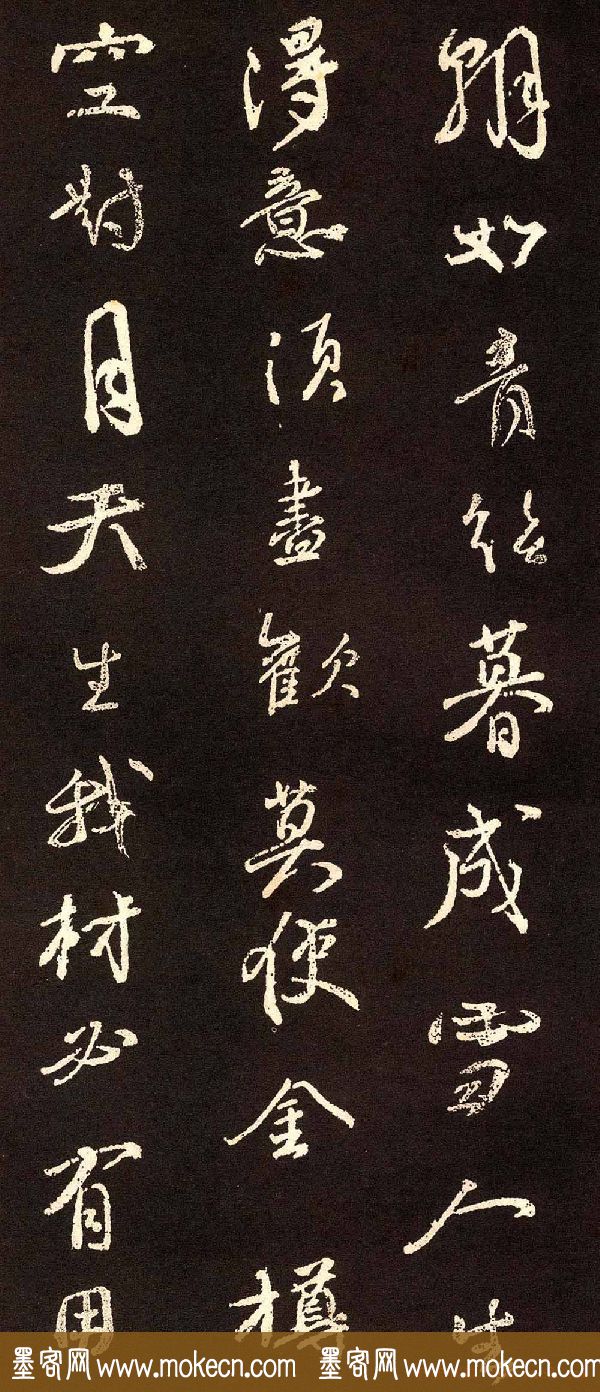 朝如青丝暮成雪人生
得意須盡歡莫使金樽
空對月天生我材必有用
墨客网www.mokecn.com 墨客网www.mokecn.com